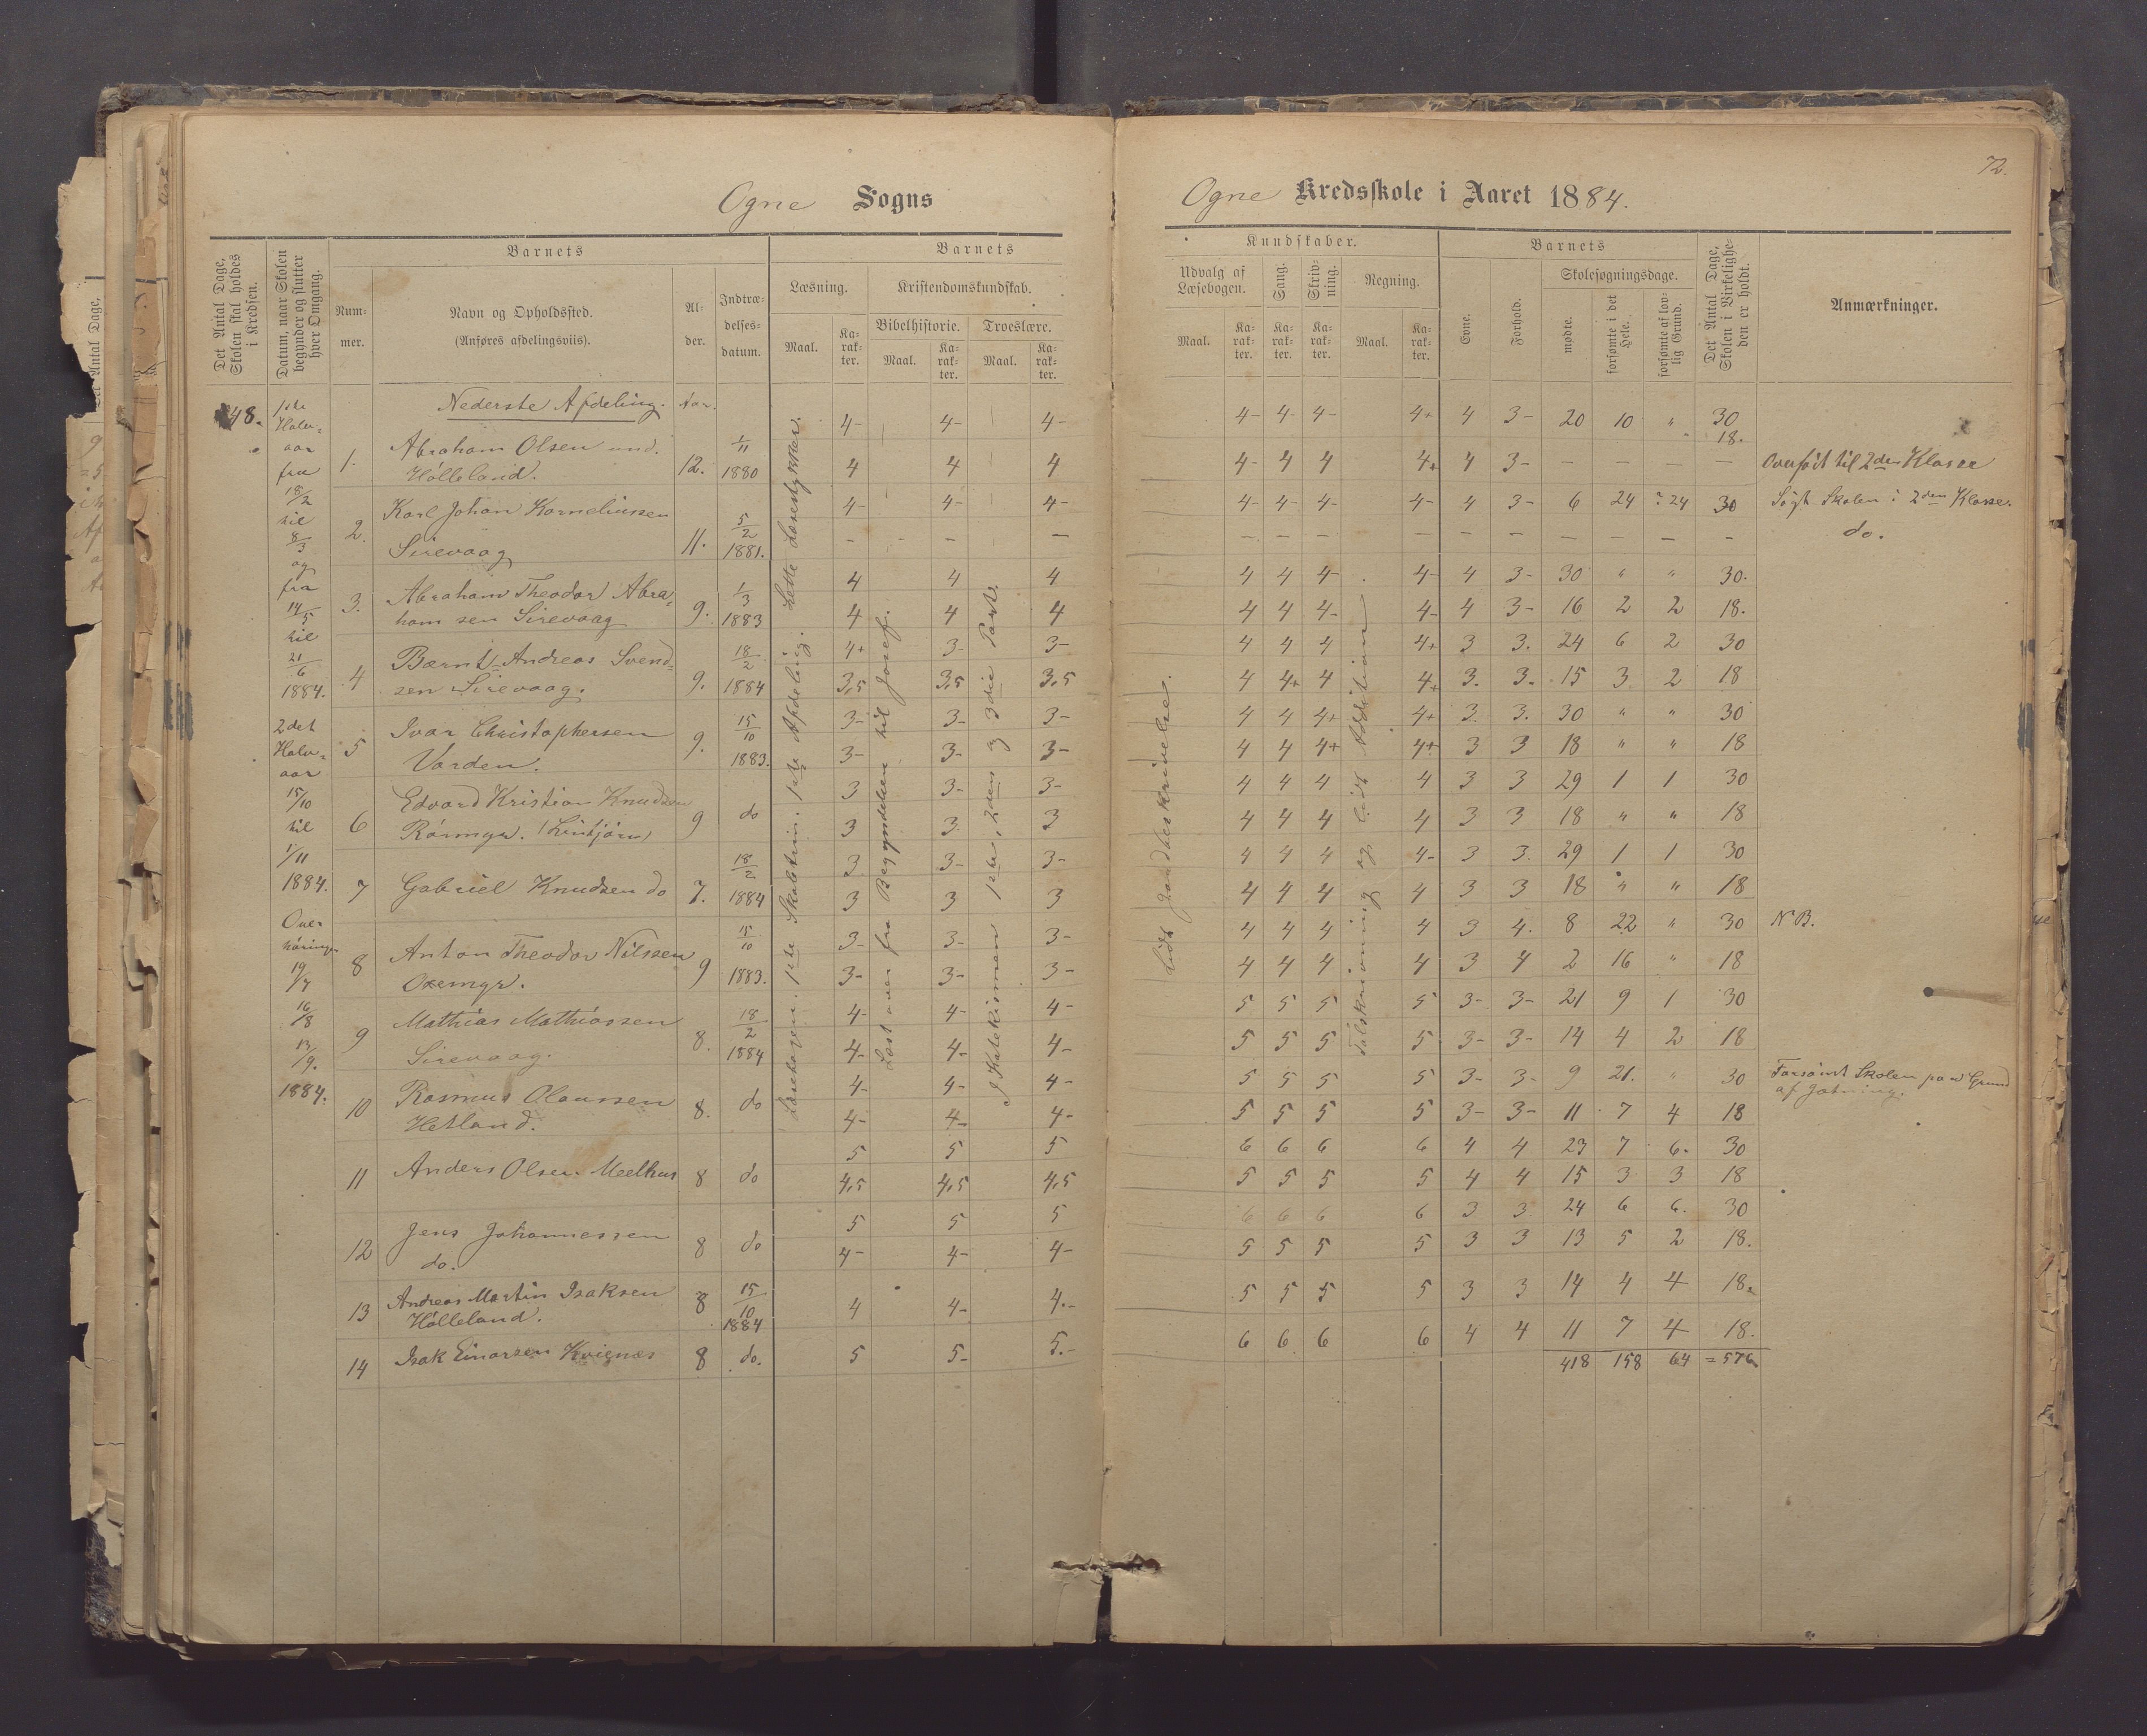 72.
Ogne Sogns
Ogne Kredsskole i Aaret 1884.
Det Antal Dage, Skolen skal holdes i Kredsen.
Datum, naar Skolen begynder og slutter hver Omgang.
Barnets
Num-
mer.
Navn og Opholdssted.
(Anføres afdelingsviis).
Al-
der.
Indtræ-
delses-
datum.
Barnets
Læsning.
Maal.
Ka-
rak-
ter.
Kristendomskundskab.
Bibelhistorie.
Maal.
Ka-
rak-
ter.
Troeslære.
Maal.
Ka-
rak-
ter.
Kundskaber.
Udvalg af
Læsebogen.
Maal.
Ka-
rak-
ter.
Sang.
Ka-
rak-
ter.
Skriv-
ning.
Ka-
rak-
ter.
Regning.
Maal.
Ka-
rak-
ter.
Barnets
Evne.
Forhold.
Skolesøgningsdage.
mødte.
forsømte i det Hele.
forsømte af lov-
lig Grund.
Det Antal Dage, Skolen i Virkelighe-
den er holdt.
Anmærkninger.
48.
1ste
Halv-
aar
fra
18/2
til
8/3
og
fra
14/5
til
21/6
1884.
2det
Halv-
aar
15/10
til
1/11
1884.
Over
høringer
19/7
16/8
13/9.
1884.
Nederste Afdeling. Aar.
4- 4- 4- 4- 4- 4- 4+ 4 3- 20 10 " 30
1. Abraham Olsen und. Hólleland. 12. 1/11 1880 4 4 4 4- 4 4 4+ 4 3- — — — 18. Overført til 2den Klasse
2. Karl Johan Korneliussen 11. 5/2 1881. 4- 4- 4- 4- 4- 4- 4- 4 3- 6 24 24 30 Søgt Skolen i 2den Klasse.
Sirevaag — — — — — — — — — — — — — do.
3. Abraham Theodor Abra- 9. 1/3 1883 4 4 4 4 4 4- 4- 4 3- 30 " " 30.
ham sen Sirevaag 4 4 4 4 4 4- 4- 4 3- 16 2 2 18.
4 Bærnt Andreas Svend- 9. 18/2 1884 4+ 3- 3- 4 4 4 4+ 3 3. 24 6 2 30
sen Sirevaag. 3,5 3,5 3,5 4 4+ 4 4+ 3. 3. 15 3 2 18
5 Ivar Christophersen 9. 15/10 1883. 3- 3- 3- 4 4 4+ 4+ 3. 3. 30 " " 30
Varden. 3- 3- 3- 4 4 4+ 4+ 3 3 18 " " 18
6 Edvard Kristian Knudsen 9 do 3 3- 3- 4 4 4 4 3 3 29 1 1 30
Rórmyr. 3 3 3 4 4 4 4 3 3 18 " " 18
7 Gabriel Knudsen do 7. 18/2 1884 3 3- 3- 4 4 4 4- 3 3. 29 1 1 30
3 3 3 4 4 4 4 3 3 18 " " 18
8 Anton Theodor Nilssen 9 15/10 1883. 3- 3- 3- 4 4 4 4 3 4. 8 22 " 30 NB.
Oxemyr. 3- 3- 3- 4 4 4 4 3 4 2 16 " 18
9 Mathias Mathiassen 8. 18/2 1884 4- 4- 4- 5 5 5 5 3- 3- 21 9 1 30
Sirevaag. 4- 4- 4- 5 5 5 5 3- 3- 14 4 2 18
10 Rasmus Olaussen 8. do 4- 4- 4- 5 5 5 5 3- 3- 9 21. " 30 Forsømt Skolen paa Grund af Gjætning.
Hetland. 4- 4- 4- 5 5 5 5 3- 3- 11 7 4 18
11 Anders Olsen Meelhus 8 do 5 5 5 6 6 6 6 4 4 23 7 6. 30
4,5 4,5 4,5 5 5 5 5 4 4 15 3 3 18
12 Jens Johannessen 8 do 5 5 5 6 6 6 6 3 3 24 6 6. 30
do. 4- 4- 4- 5 5 5 5 3 3 13 5 2 18.
13 Andreas Martin Isaksen Hólleland. 8 15/10 1884 4 4- 4.- 5 5 5 5 3 3 14 4 4 18.
14 Isak Einarsen Kvienes 8 do. 5 5- 5.- 6 6 6 6 4 4 11 7 4 18.
418 158 64 = 576
Læsebogen. 1ste Skoletrin. 1ste Afdeling. Lette Læsestykker.
Læst over fra Begyndelsen til Josef.
I Katekismen 1ste, 2den og 3die Part.
Lidt Jordbeskrivelse.
Talskrivning og lidt Addition